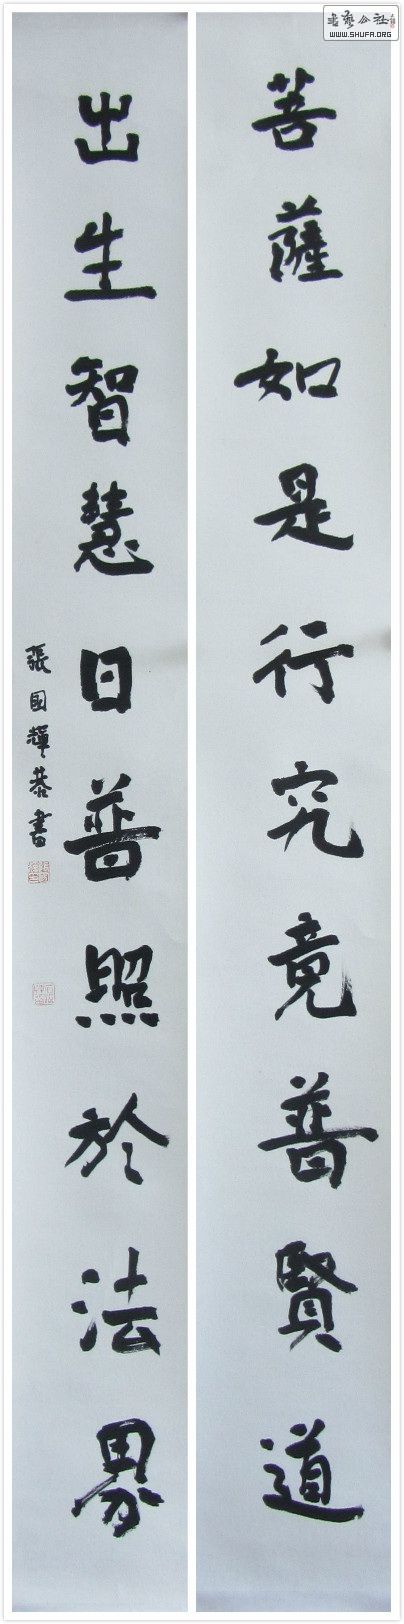 菩薩如是行究竟普賢道
出生智慧日普照於法界
張國輝恭書
書藝公社
WWW.SHUFA.ORG